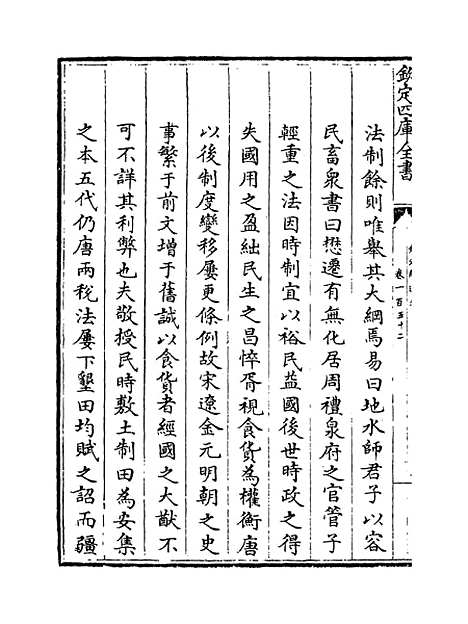 欽定四庫全書
卷一百五十二
法制餘則唯舉其大綱焉易曰地水師君子以容
民畜衆書曰懋遷有無化居周禮泉府之官管子
輕重之法因時制宜以裕民益國後世時政之得
失國用之盈絀民生之昌悴胥視食貨為權衡唐
以後制度變移屢更條例故宋遼金元明朝之史
事繁于前文增于舊誠以食貨者經國之大猷不
可不詳其利弊也夫敬授民時敷土制田為安集
之本五代仍唐兩稅法屢下墾田均賦之詔而疆